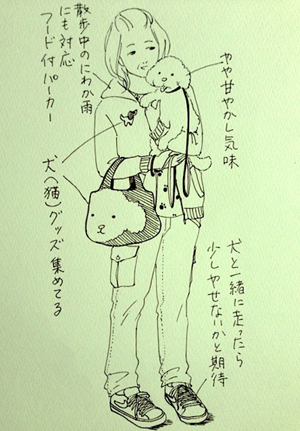 やや甘やかし気味
犬と一緒に走ったら
少しやせないかと期待
散歩中のにわか雨
にも対応
フード付パーカー
犬(猫)グッズ集めてる